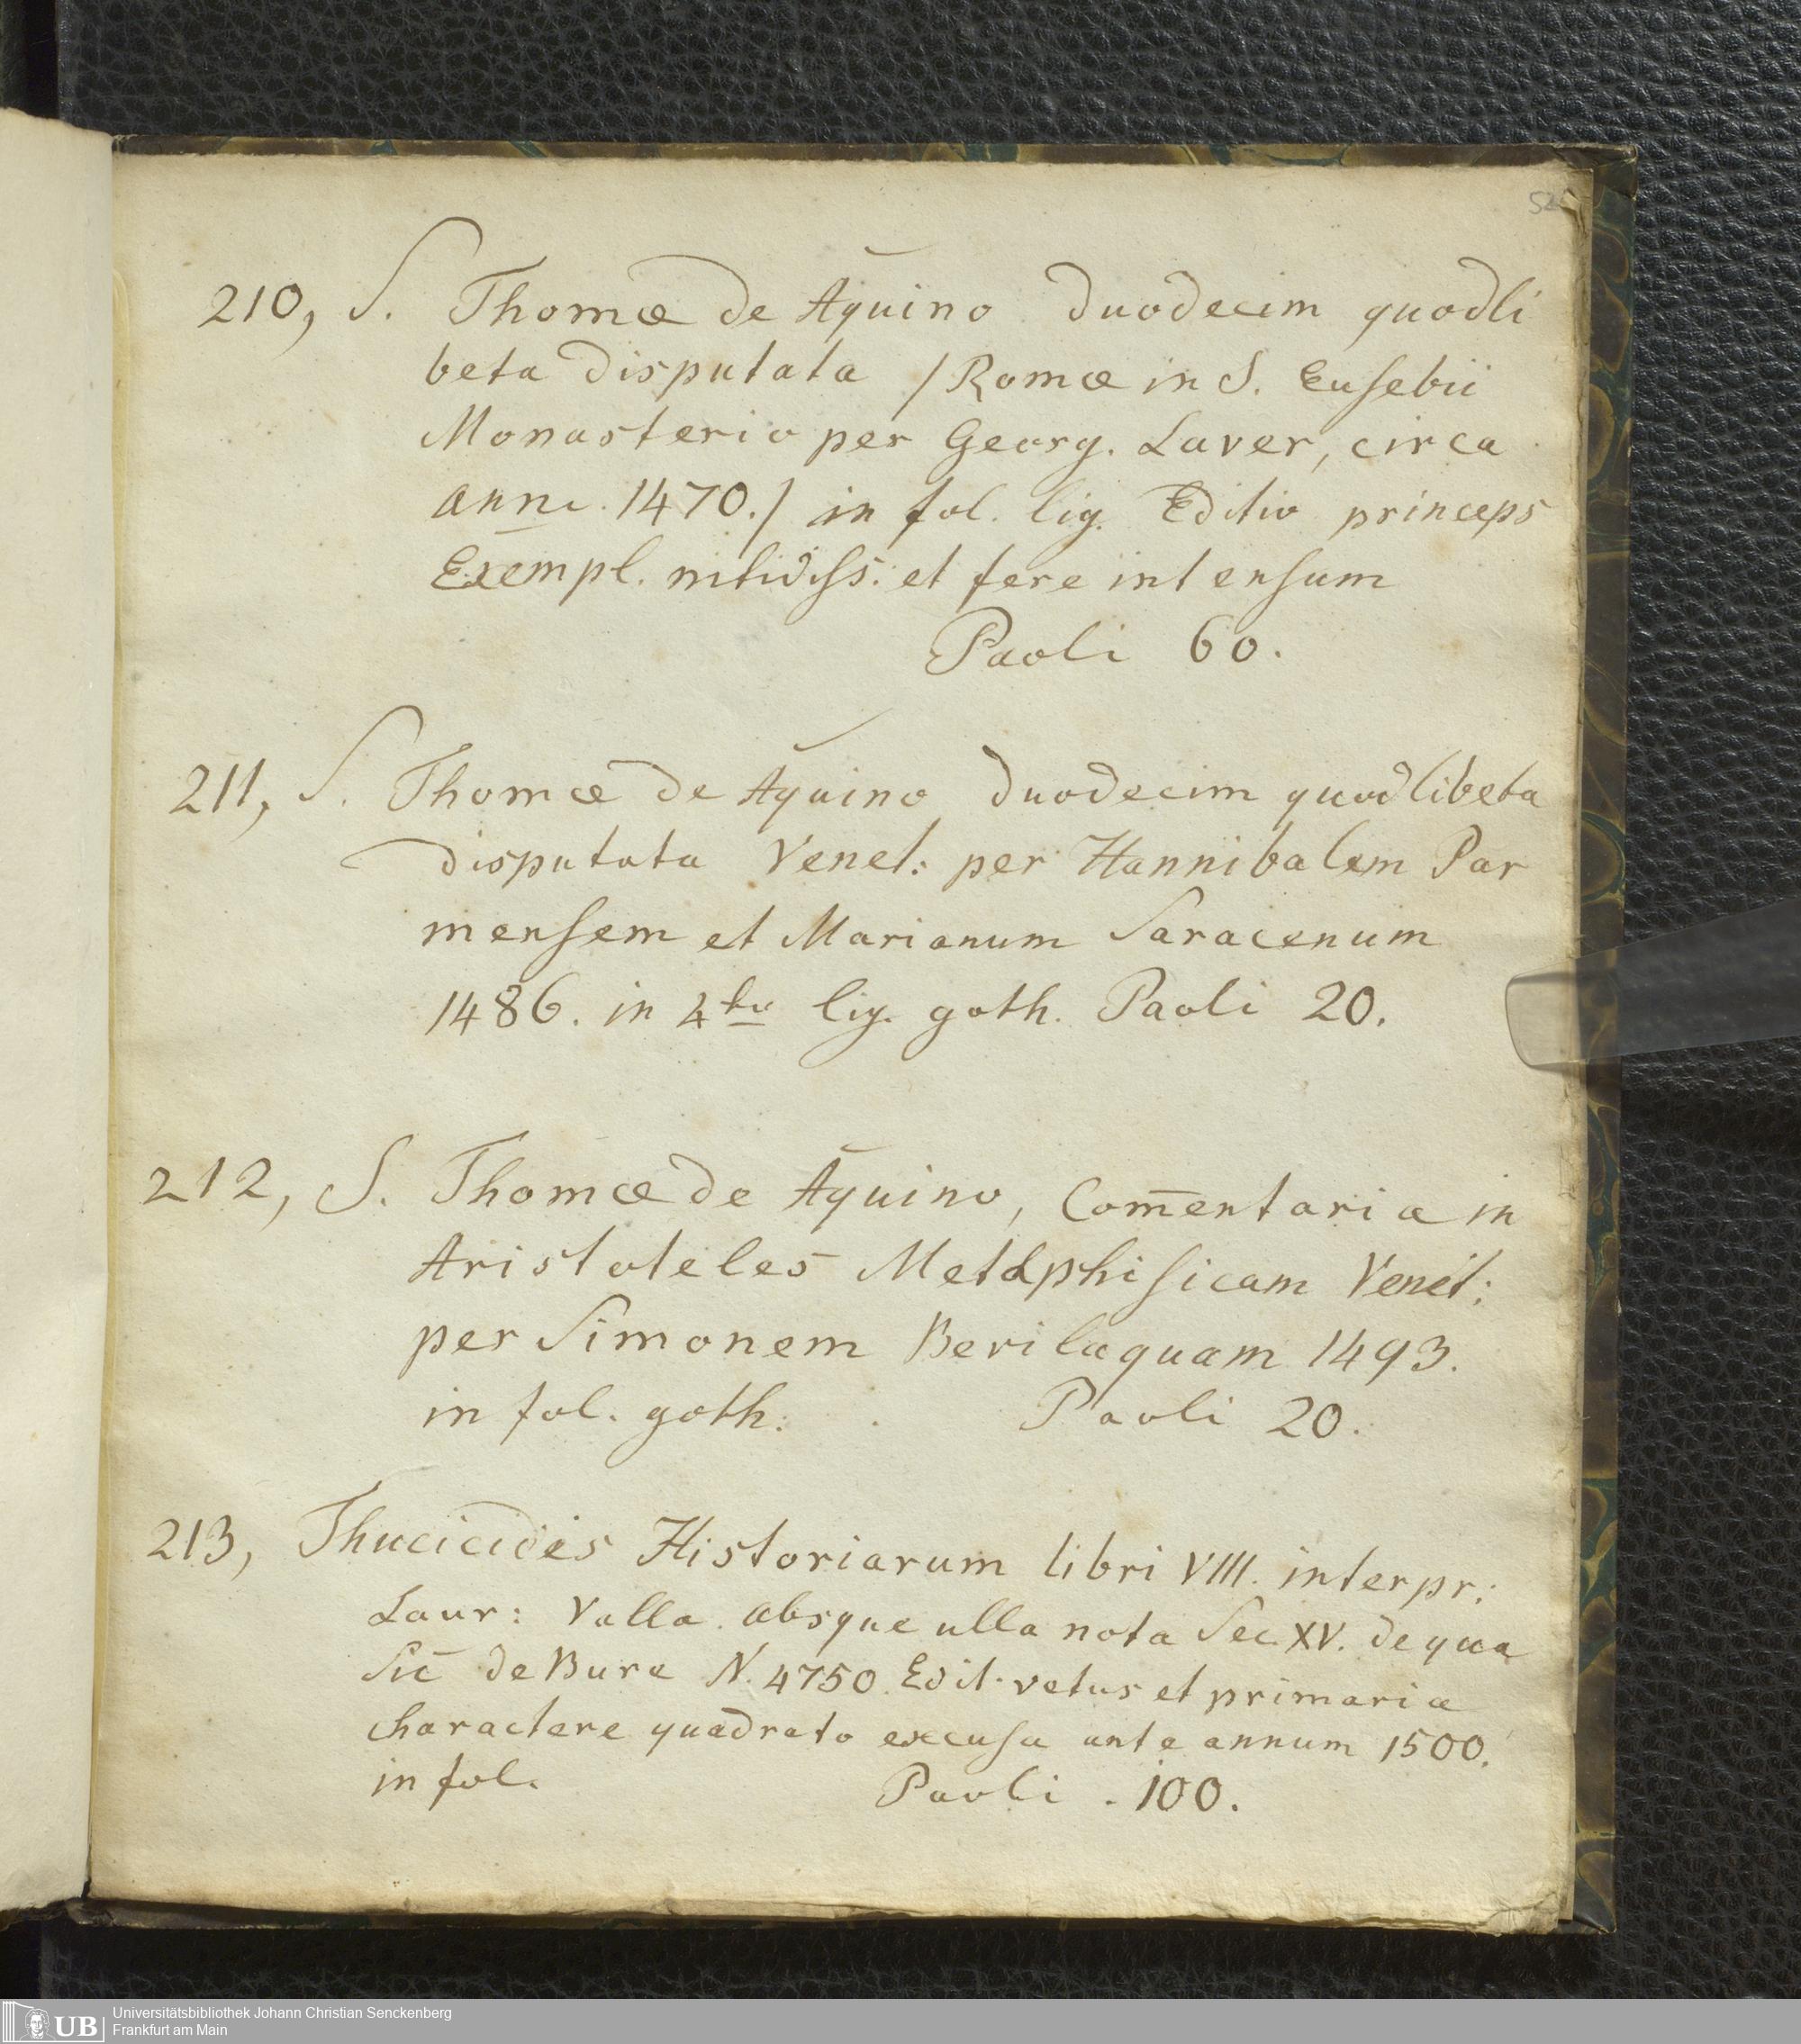 52
210, S. Thomæ de Aquino duodecim quodli
beta disputata /Romæ in S. Eusebii
Monasterio per Georg. Laver, circa
ann. 1470./ in fol. lig. Editio princeps
Exempl. nitidiss: et fere intensum
Paoli 60.
211, S. Thomæ de Aquino duodecim quodlibeta
disputata Venet: per Hannibalem Par
mensem et Marianum Saracenum
1486. in 4to lig. goth. Paoli 20.
212, S. Thomæ de Aquino, Com̅entaria in
Aristoteles Metaphisicam Venet:
per Simonem Berilaquam 1493.
in fol. goth: Paoli 20.
213, Thucicidis Historiarum libri VIII. interpr:
Laur: Valla. absque ulla nota Sec. XV. de qua
Sic de Bure N. 4750. Edit. vetus et primaria
charactere quadrato excusa ante annum 1500.
in fol. Paoli . 100.
UB
Universitätsbibliothek Johann Christian Senckenberg
Frankfurt am Main